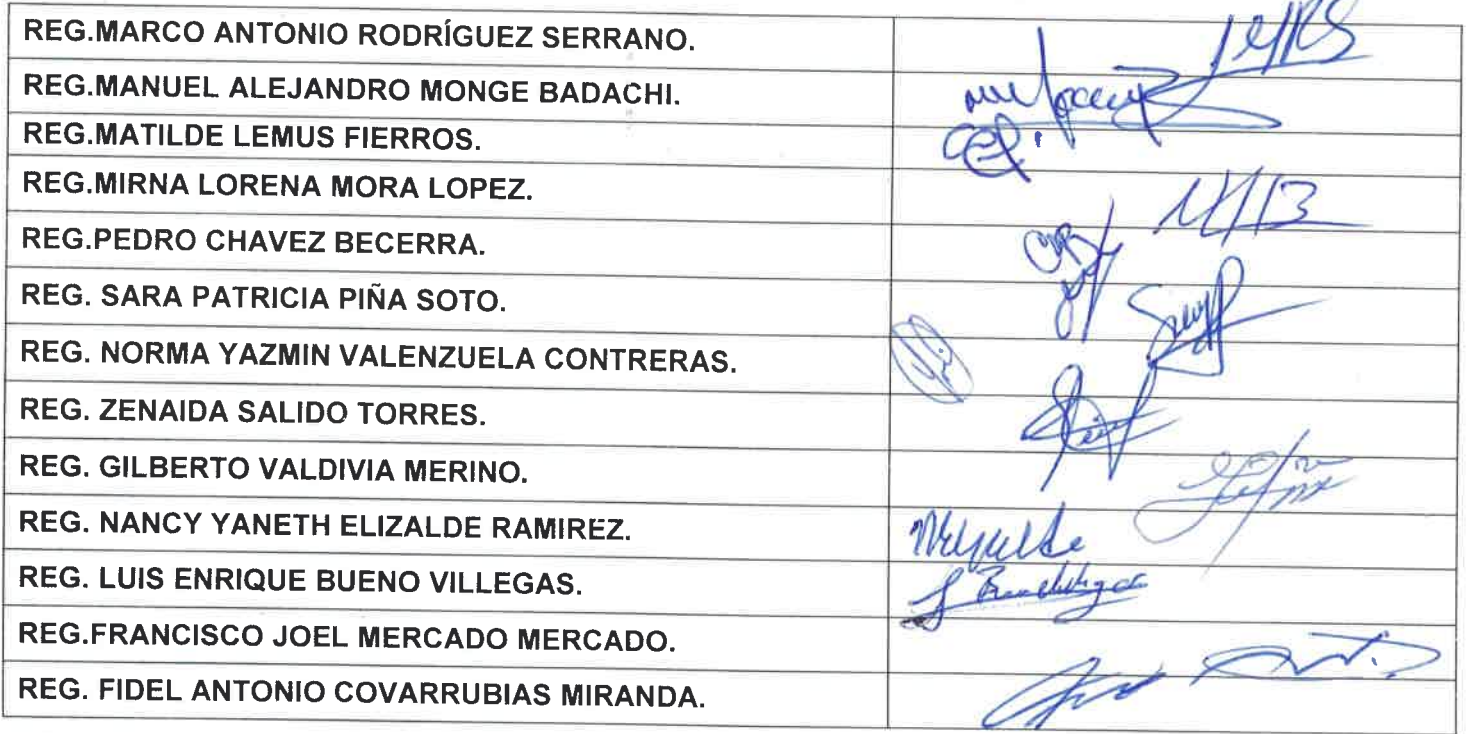 REG.MARCO ANTONIO RODRÍGUEZ SERRANO.
REG.MANUEL ALEJANDRO MONGE BADACHI.
REG.MATILDE LEMUS FIERROS.
REG.MIRNA LORENA MORA LOPEZ.
REG.PEDRO CHAVEZ BECERRA.
REG. SARA PATRICIA PIÑA SOTO.
REG. NORMA YAZMIN VALENZUELA CONTRERAS.
REG. ZENAIDA SALIDO TORRES.
REG. GILBERTO VALDIVIA MERINO.
REG. NANCY YANETH ELIZALDE RAMIREZ.
REG. LUIS ENRIQUE BUENO VILLEGAS.
REG.FRANCISCO JOEL MERCADO MERCADO.
REG. FIDEL ANTONIO COVARRUBIAS MIRANDA.